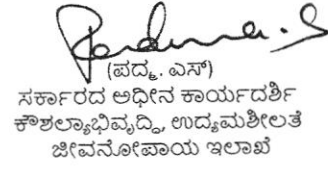 Padma. S
(ಪದ್ಮ. ಎಸ್)
ಸರ್ಕಾರದ ಅಧೀನ ಕಾರ್ಯದರ್ಶಿ
ಕೌಶಲ್ಯಾಭಿವೃದ್ಧಿ, ಉದ್ಯಮಶೀಲತೆ
ಜೀವನೋಪಾಯ ಇಲಾಖೆ